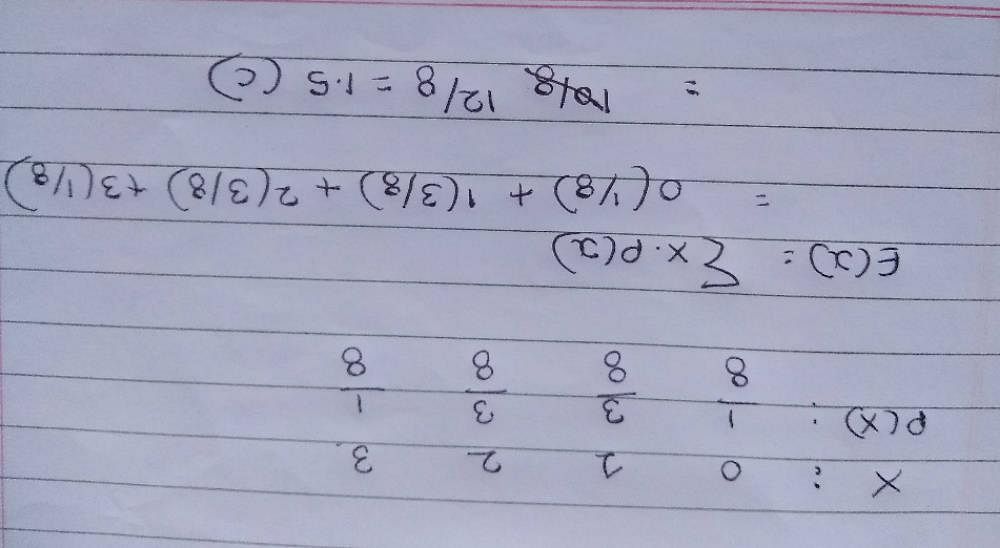 X : 0 1 2 3
P(X) : 1/8 3/8 3/8 1/8
E(x) = Σx.P(x)
= 0(1/8) + 1(3/8) + 2(3/8) + 3(1/8)
= 12/8 = 1.5 (c)